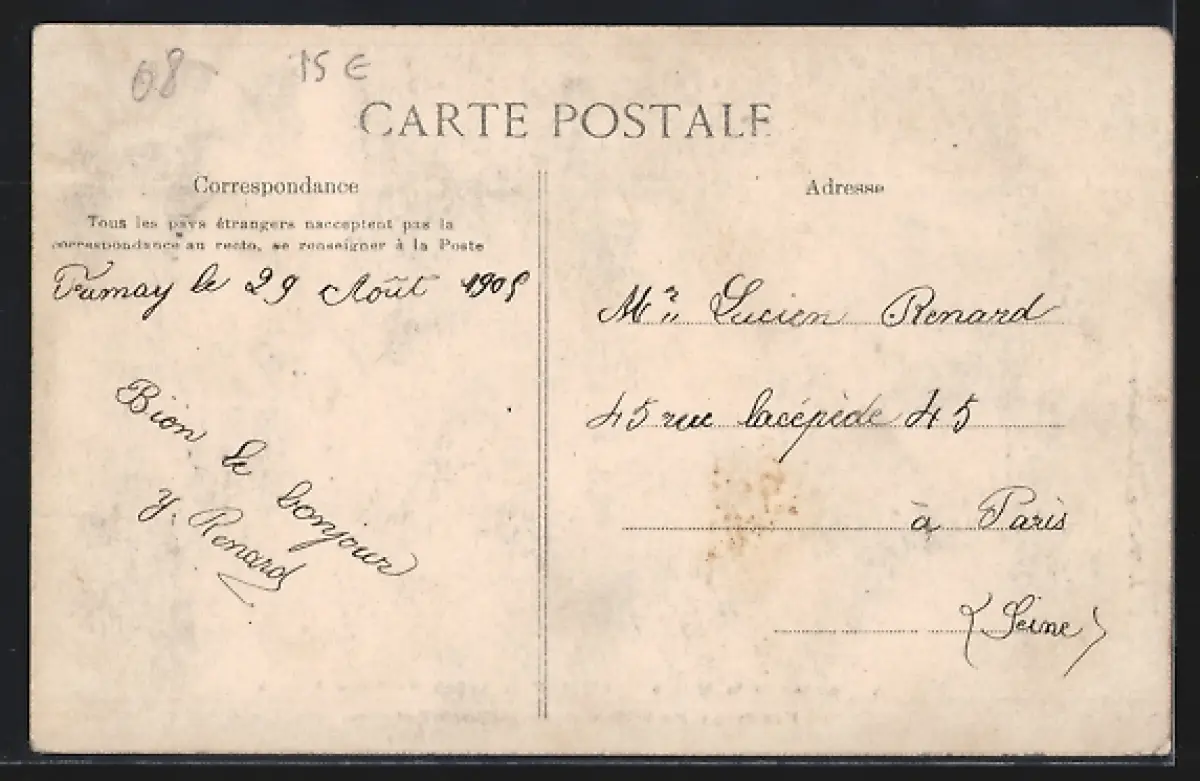 08
15 €
CARTE POSTALE
Correspondance
Tous les pays étrangers nacceptent pas la
correspondance au recto, se renseigner à la Poste
Fumay le 29 Août 1905
Bien le bonjour
Y. Renard
Adresse
Mr Lucien Renard
45 rue lacépède 45
à Paris
(Seine)